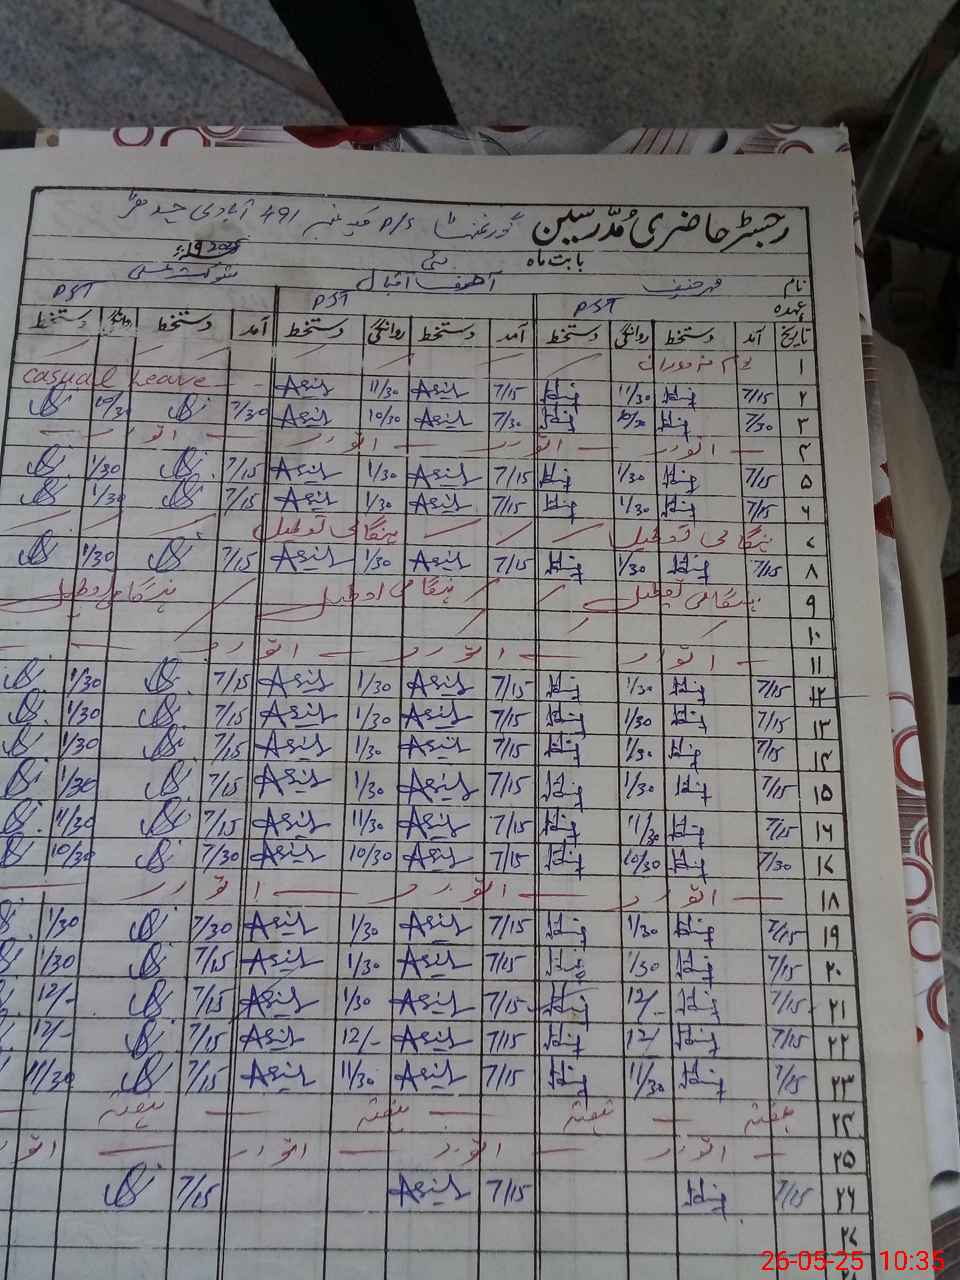 رجسٹر حاضری مُدرسین گورنمنٹ P/S 491 آبادی
بابت ماہ مئی 2025ء
نام محمد حنیف آصف اقبال شوکت علی
عہدہ PST PST PST
تاریخ آمد دستخط روانگی دستخط آمد دستخط روانگی دستخط آمد دستخط روانگی دستخط
۱ یکم مزدوراں
۲ 7/15 11/30 7/15 Asif 11/30 Asif Casual Leave
۳ 7/30 10/30 7/30 Asif 10/30 Asif 7/30 10/30
۴ اتوار اتوار اتوار اتوار
۵ 7/15 1/30 7/15 Asif 1/30 Asif 7/15 1/30
۶ 7/15 1/30 7/15 Asif 1/30 Asif 7/15 1/30
۷ ہنگامی تعطیل ہنگامی تعطیل
۸ 7/15 1/30 7/15 Asif 1/30 Asif 7/15 1/30
۹ ہنگامی تعطیل ہنگامی تعطیل ہنگامی تعطیل
۱۰
۱۱ اتوار اتوار اتوار اتوار
۱۲ 7/15 1/30 7/15 Asif 1/30 Asif 7/15 1/30
۱۳ 7/15 1/30 7/15 Asif 1/30 Asif 7/15 1/30
۱۴ 7/15 1/30 7/15 Asif 1/30 Asif 7/15 1/30
۱۵ 7/15 1/30 7/15 Asif 1/30 Asif 7/15 1/30
۱۶ 7/15 11/30 7/15 Asif 11/30 Asif 7/15 11/30
۱۷ 7/30 10/30 7/15 Asif 10/30 Asif 7/30 10/30
۱۸ اتوار اتوار اتوار
۱۹ 7/15 1/30 7/15 Asif 1/30 Asif 7/30 1/30
۲۰ 7/15 1/30 7/15 Asif 1/30 Asif 7/15 1/30
۲۱ 7/15 12/- 7/15 Asif 1/30 Asif 7/15 12/-
۲۲ 7/15 12/ 7/15 Asif 12/- Asif 7/15 12/-
۲۳ 7/15 11/30 7/15 Asif 11/30 Asif 7/15 11/30
۲۴ ہفتہ ہفتہ ہفتہ ہفتہ
۲۵ اتوار اتوار اتوار اتوار
۲۶ 7/15 7/15 Asif 7/15
۲۷
26-05-25 10:35